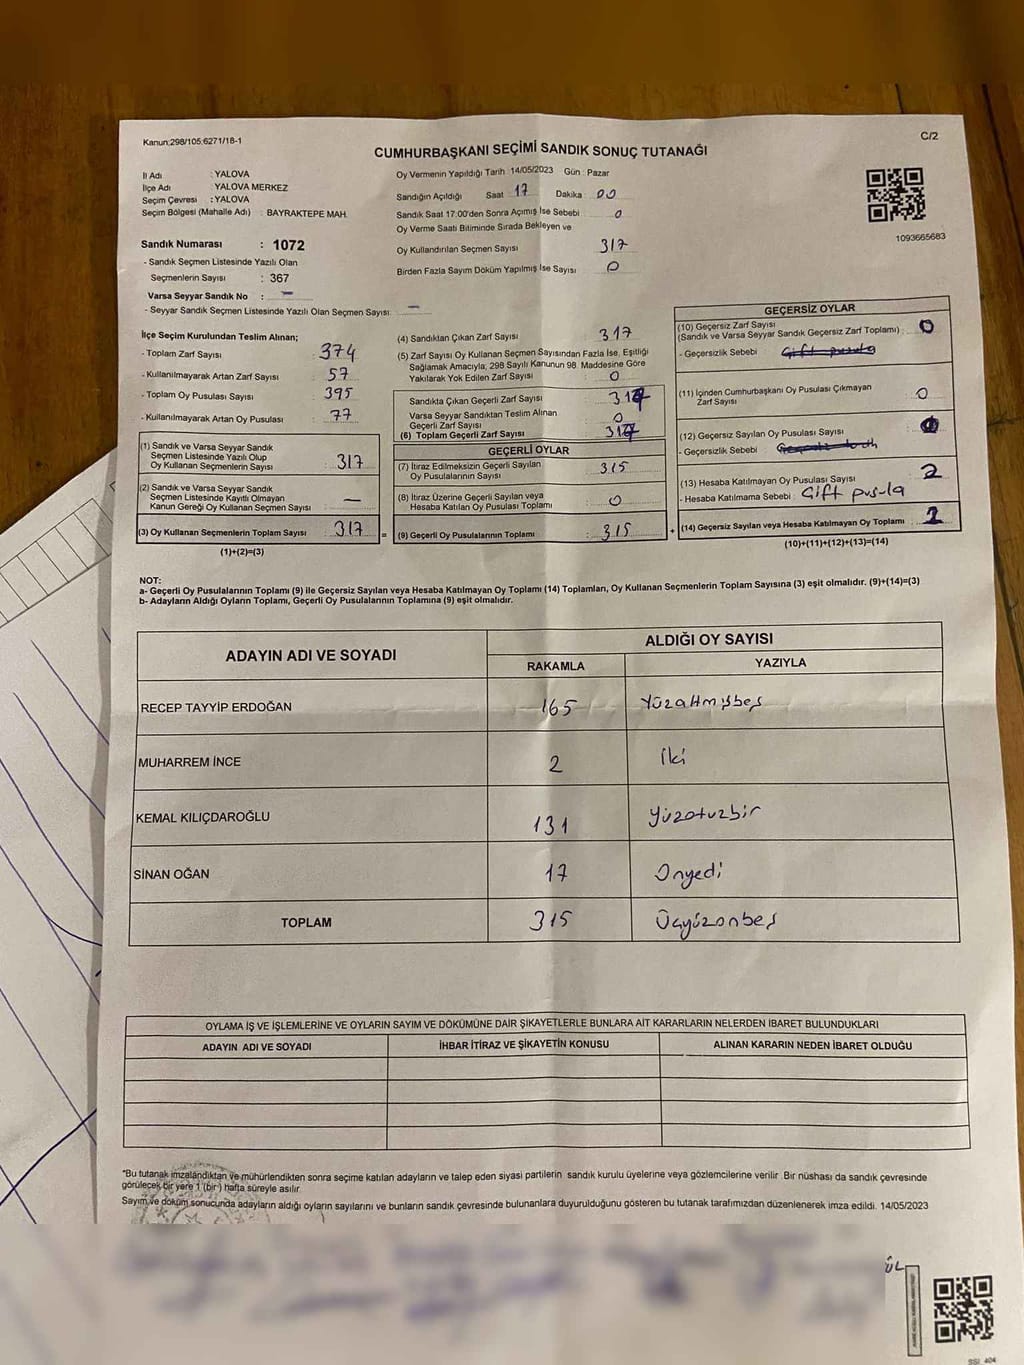 Kanun:298/105:6271/18-1
C/2
CUMHURBAŞKANI SEÇİMİ SANDIK SONUÇ TUTANAĞI
İl Adı : YALOVA
İlçe Adı : YALOVA MERKEZ
Seçim Çevresi : YALOVA
Seçim Bölgesi (Mahalle Adı) : BAYRAKTEPE MAH.
Sandık Numarası : 1072
- Sandık Seçmen Listesinde Yazılı Olan
Seçmenlerin Sayısı : 367
Varsa Seyyar Sandık No : -
- Seyyar Sandık Seçmen Listesinde Yazılı Olan Seçmen Sayısı: -
Oy Vermenin Yapıldığı Tarih 14/05/2023 Gün : Pazar
Sandığın Açıldığı Saat 17 Dakika 00
Sandık Saat 17:00'den Sonra Açımış İse Sebebi 0
Oy Verme Saati Bitiminde Sırada Bekleyen ve
Oy Kullandırılan Seçmen Sayısı 317
Birden Fazla Sayım Döküm Yapılmış İse Sayısı 0
1093665683
İlçe Seçim Kurulundan Teslim Alınan;
- Toplam Zarf Sayısı : 374
- Kullanılmayarak Artan Zarf Sayısı : 57
- Toplam Oy Pusulası Sayısı : 395
- Kullanılmayarak Artan Oy Pusulası : 77
(1) Sandık ve Varsa Seyyar Sandık
Seçmen Listesinde Yazılı Olup
Oy Kullanan Seçmenlerin Sayısı : 317
(2) Sandık ve Varsa Seyyar Sandık
Seçmen Listesinde Kayıtlı Olmayan
Kanun Gereği Oy Kullanan Seçmen Sayısı : —
(3) Oy Kullanan Seçmenlerin Toplam Sayısı : 317
(1)+(2)=(3)
=
(4) Sandıktan Çıkan Zarf Sayısı : 317
(5) Zarf Sayısı Oy Kullanan Seçmen Sayısından Fazla İse, Eşitliği
Sağlamak Amacıyla; 298 Sayılı Kanunun 98. Maddesine Göre
Yakılarak Yok Edilen Zarf Sayısı : 0
Sandıkta Çıkan Geçerli Zarf Sayısı : 317
Varsa Seyyar Sandıktan Teslim Alınan
Geçerli Zarf Sayısı : 0
(6) Toplam Geçerli Zarf Sayısı : 317
GEÇERLİ OYLAR
(7) İtiraz Edilmeksizin Geçerli Sayılan
Oy Pusulalarının Sayısı : 315
(8) İtiraz Üzerine Geçerli Sayılan veya
Hesaba Katılan Oy Pusulası Toplamı : 0
(9) Geçerli Oy Pusulalarının Toplamı : 315
+
GEÇERSİZ OYLAR
(10) Geçersiz Zarf Sayısı
(Sandık ve Varsa Seyyar Sandık Geçersiz Zarf Toplamı) : 0
- Geçersizlik Sebebi : Çift pusula
(11) İçinden Cumhurbaşkanı Oy Pusulası Çıkmayan
Zarf Sayısı : 0
(12) Geçersiz Sayılan Oy Pusulası Sayısı :
- Geçersizlik Sebebi :
(13) Hesaba Katılmayan Oy Pusulası Sayısı : 2
- Hesaba Katılmama Sebebi : Çift pusula
(14) Geçersiz Sayılan veya Hesaba Katılmayan Oy Toplamı : 2
(10)+(11)+(12)+(13)=(14)
NOT:
a- Geçerli Oy Pusulalarının Toplamı (9) ile Geçersiz Sayılan veya Hesaba Katılmayan Oy Toplamı (14) Toplamları, Oy Kullanan Seçmenlerin Toplam Sayısına (3) eşit olmalıdır. (9)+(14)=(3)
b- Adayların Aldığı Oyların Toplamı, Geçerli Oy Pusulalarının Toplamına (9) eşit olmalıdır.
ADAYIN ADI VE SOYADI
ALDIĞI OY SAYISI
RAKAMLA YAZIYLA
RECEP TAYYİP ERDOĞAN 165 Yüzaltmışbeş
MUHARREM İNCE 2 İki
KEMAL KILIÇDAROĞLU 131 Yüzotuzbir
SİNAN OĞAN 17 Onyedi
TOPLAM 315 Üçyüzonbeş
OYLAMA İŞ VE İŞLEMLERİNE VE OYLARIN SAYIM VE DÖKÜMÜNE DAİR ŞİKAYETLERLE BUNLARA AİT KARARLARIN NELERDEN İBARET BULUNDUKLARI
ADAYIN ADI VE SOYADI İHBAR İTİRAZ VE ŞİKAYETİN KONUSU ALINAN KARARIN NEDEN İBARET OLDUĞU
"Bu tutanak imzalandıktan ve mühürlendikten sonra seçime katılan adayların ve talep eden siyasi partilerin sandık kurulu üyelerine veya gözlemcilerine verilir. Bir nüshası da sandık çevresinde
görülecek bir yere 1 (bir) hafta süreyle asılır.
Sayım ve döküm sonucunda adayların aldığı oyların sayılarını ve bunların sandık çevresinde bulunanlara duyurulduğunu gösteren bu tutanak tarafımızdan düzenlenerek imza edildi. 14/05/2023
ÜL
SSI_404